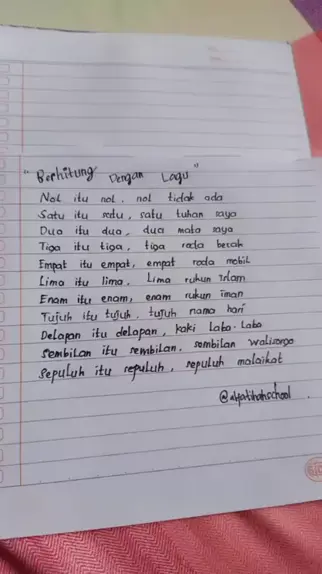 "Berhitung Dengan Lagu"
Nol itu nol, nol tidak ada
Satu itu satu, satu tuhan saya
Dua itu dua, dua mata saya
Tiga itu tiga, tiga roda becak
Empat itu empat, empat roda mobil
Lima itu lima, Lima rukun Islam
Enam itu enam, enam rukun iman
Tujuh itu tujuh, tujuh nama hari
Delapan itu delapan, kaki laba-laba
Sembilan itu sembilan, sembilan walisongo
Sepuluh itu sepuluh, sepuluh malaikat
@alfatihahschool